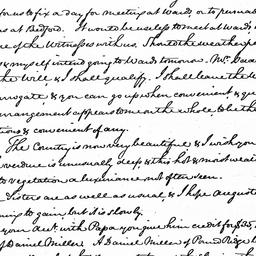 for us to fix a day for meeting at Ward's, or to perma
us at Bedford. It would be useless to meet at Ward's
one of the Witnesses with us. Should the weather per
& myself intend going to Wards tomorrow. Mr.
the Will, & I shall qualify. I shall leave the W
Surrogate & you can go up when convenient & q
arrangement appears to me on the whole, to be the
tious & convenient of any.
The Country is now very beautiful & I wish you
verdure is unusually deep & this hot & moist weat
to vegetation a luxuriance not often seen.
Sisters are as well as usual, & I hope August
ning to gain but it is slowly.
your acct with Papa you give him credit for $25.
of Daniel Miller. A Daniel Miller of Pound Ridge